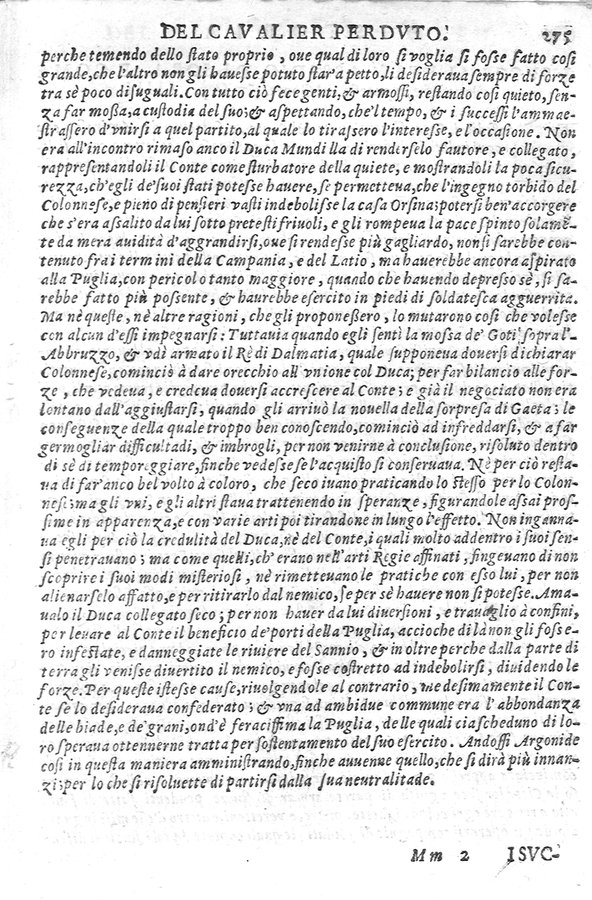 DEL CAVALIER PERDVTO. 275
perche temendo dello stato proprio, oue qual di loro si voglia si fosse fatto così
grande, che l'altro non gli hauesse potuto star'a petto, li desideraua sempre di forze
tra sè poco disuguali. Con tutto ciò fece genti, & armossi, restando così quieto, sen-
za far mossa, a custodia del suo; & aspettando, che'l tempo, & i successi l'ammae-
strassero d'vnirsi a quel partito, al quale lo tirassero l'interesse, e l'occasione. Non
era all'incontro rimaso anco il Duca Mundilla di renderselo fautore, e collegato,
rappresentandoli il Conte come sturbatore della quiete, e mostrandoli la poca sicu-
rezza, ch'egli de' suoi stati potesse hauere, se permetteua, che l'ingegno torbido del
Colonnese, e pieno di pensieri vasti indebolisse la casa Orsina; potersi ben'accorgere
che s'era assalito da lui sotto pretesti friuoli, e gli rompeua la pace spinto solamē-
te da mera auidità d'aggrandirsi, oue si rendesse più gagliardo, non si sarebbe con-
tenuto frà i termini della Campania, e del Latio, ma hauerebbe ancora aspirato
alla Puglia, con pericolo tanto maggiore, quando che hauendo depresso sè, si sa-
rebbe fatto più possente, & haurebbe esercito in piedi di soldatesca agguerrita.
Ma nè queste, nè altre ragioni, che gli proponessero, lo mutarono così che volesse
con alcun d'essi impegnarsi: Tuttauia quando egli sentì la mossa de' Goti sopra l'-
Abbruzzo, & vdì armato il Rè di Dalmatia, quale supponeua douersi dichiarar
Colonnese, cominciò a dare orecchio all'vnione col Duca; per far bilancio alle for-
ze, che vedeua, e credeua douersi accrescere al Conte; e già il negociato non era
lontano dall'aggiustarsi, quando gli arriuò la nouella della sorpresa di Gaeta; le
conseguenze della quale troppo ben conoscendo, cominciò ad infreddarsi, & a far
germogliar difficultadi, & imbrogli, per non venirne à conclusione, risoluto dentro
di sè di temporeggiare, finche vedesse se l'acquisto si conseruaua. Nè per ciò resta-
ua di far'anco bel volto à coloro, che seco iuano praticando lo stesso per lo Colon-
nese; ma gli vni, e gli altri staua trattenendo in speranze, figurandole assai pros-
sime in apparenza, e con varie arti poi tirandone in lungo l'effetto. Non inganna-
ua egli per ciò la credulità del Duca, nè del Conte, i quali molto addentro i suoi sen-
si penetrauano; ma come quelli, ch'erano nell'arti Regie affinati, fingeuano di non
scoprire i suoi modi misteriosi, nè rimetteuano le pratiche con esso lui, per non
alienarselo affatto, e per ritirarlo dal nemico, se per sè hauere non si potesse. Ama-
ualo il Duca collegato seco; per non hauer da lui diuersioni, e trauaglio à confini,
per leuare al Conte il beneficio de' porti della Puglia, accioche di là non gli fosse-
ro infestate, e danneggiate le riuiere del Sannio, & in oltre perche dalla parte di
terra gli venisse diuertito il nemico, e fosse costretto ad indebolirsi, diuidendo le
forze. Per queste istesse cause, riuolgendole al contrario, medesimamente il Con-
te se lo desideraua confederato; & vna ad ambidue commune era l'abbondanza
delle biade, e de' grani, ond'è feracissima la Puglia, delle quali ciascheduno di lo-
ro speraua ottennerne tratta per sostentamento del suo esercito. Andossi Argonide
così in questa maniera amministrando, finche auuenne quello, che si dirà più innan-
zi; per lo che si risoluette di partirsi dalla sua neutralitade.
Mm 2 I SVC-